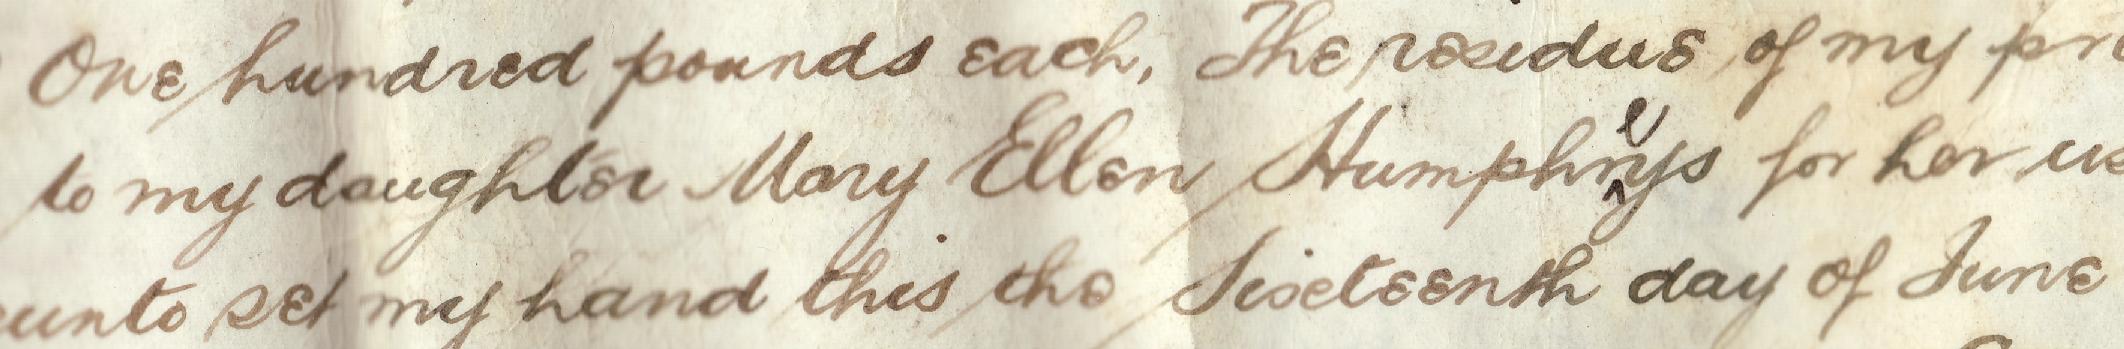 One hundred pounds each, The residue of my pr
to my daughter Mary Ellen Humphreys for her us
eunto set my hand this the Sixteenth day of June